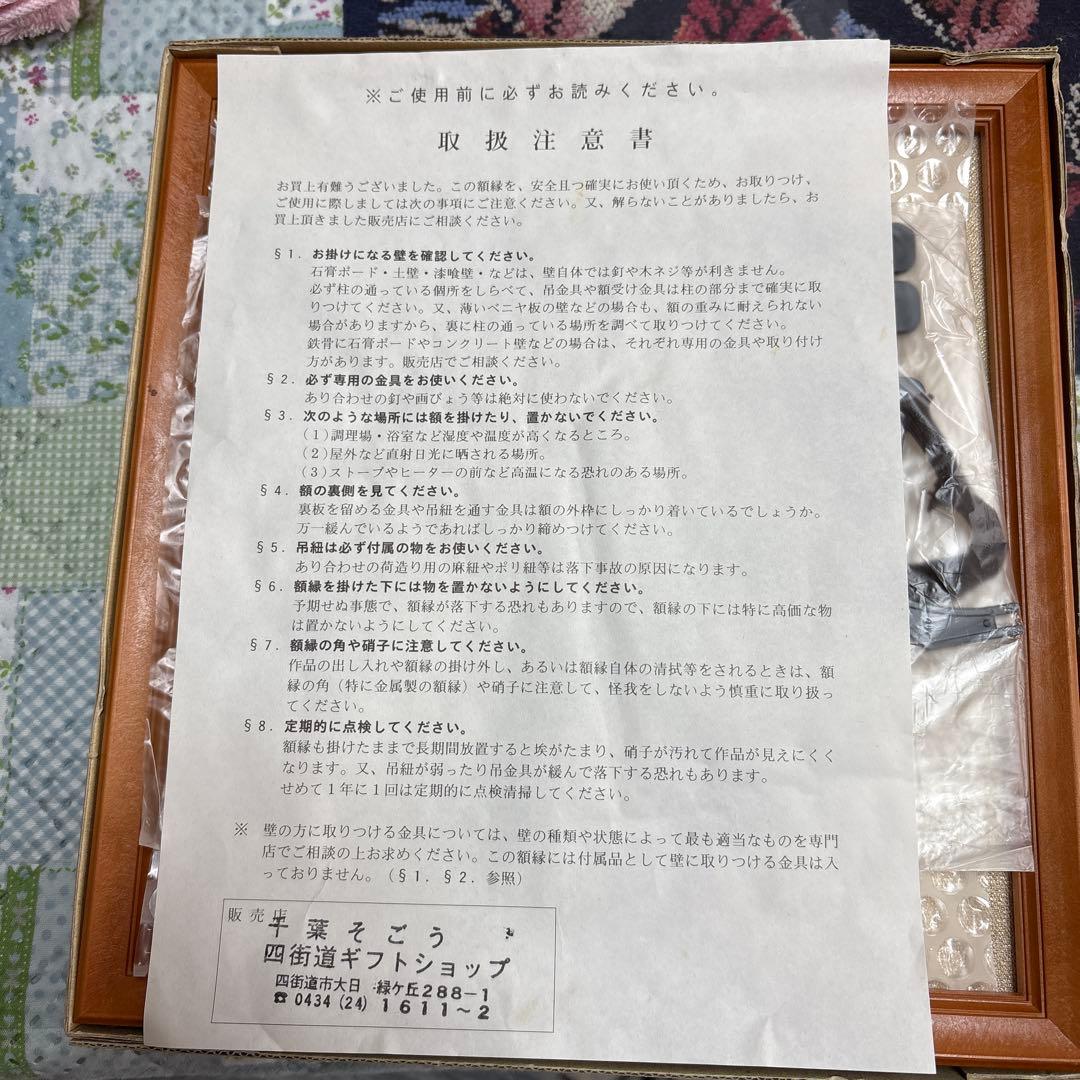 ※ご使用前に必ずお読みください。
取扱注意書
お買上有難うございました。この額縁を、安全且つ確実にお使い頂くため、お取りつけ、
ご使用に際しましては次の事項にご注意ください。又、解らないことがありましたら、お
買上頂きました販売店にご相談ください。
§1. お掛けになる壁を確認してください。
石膏ボード・土壁・漆喰壁・などは、壁自体では釘や木ネジ等が利きません。
必ず柱の通っている個所をしらべて、吊金具や額受け金具は柱の部分まで確実に取
りつけてください。又、薄いベニヤ板の壁などの場合も、額の重みに耐えられない
場合がありますから、裏に柱の通っている場所を調べて取りつけてください。
鉄骨に石膏ボードやコンクリート壁などの場合は、それぞれ専用の金具や取り付け
方があります。販売店でご相談ください。
§2. 必ず専用の金具をお使いください。
あり合わせの釘や画びょう等は絶対に使わないでください。
§3. 次のような場所には額を掛けたり、置かないでください。
(1)調理場・浴室など湿度や温度が高くなるところ。
(2)屋外など直射日光に晒される場所。
(3)ストーブやヒーターの前など高温になる恐れのある場所。
§4. 額の裏側を見てください。
裏板を留める金具や吊紐を通す金具は額の外枠にしっかり着いているでしょうか。
万一緩んでいるようであればしっかり締めつけてください。
§5. 吊紐は必ず付属の物をお使いください。
あり合わせの荷造り用の麻紐やポリ紐等は落下事故の原因になります。
§6. 額縁を掛けた下には物を置かないようにしてください。
予期せぬ事態で、額縁が落下する恐れもありますので、額縁の下には特に高価な物
は置かないようにしてください。
§7. 額縁の角や硝子に注意してください。
作品の出し入れや額縁の掛け外し、あるいは額縁自体の清拭等をされるときは、額
縁の角(特に金属製の額縁)や硝子に注意して、怪我をしないよう慎重に取り扱っ
てください。
§8. 定期的に点検してください。
額縁も掛けたままで長期間放置すると埃がたまり、硝子が汚れて作品が見えにくく
なります。又、吊紐が弱ったり吊金具が緩んで落下する恐れもあります。
せめて1年に1回は定期的に点検清掃してください。
※ 壁の方に取りつける金具については、壁の種類や状態によって最も適当なものを専門
店でご相談の上お求めください。この額縁には付属品として壁に取りつける金具は入
っておりません。(§1. §2. 参照)
販売店
千葉そごう
四街道ギフトショップ
四街道市大日 緑ケ丘288-1
☎0434(24)1611~2